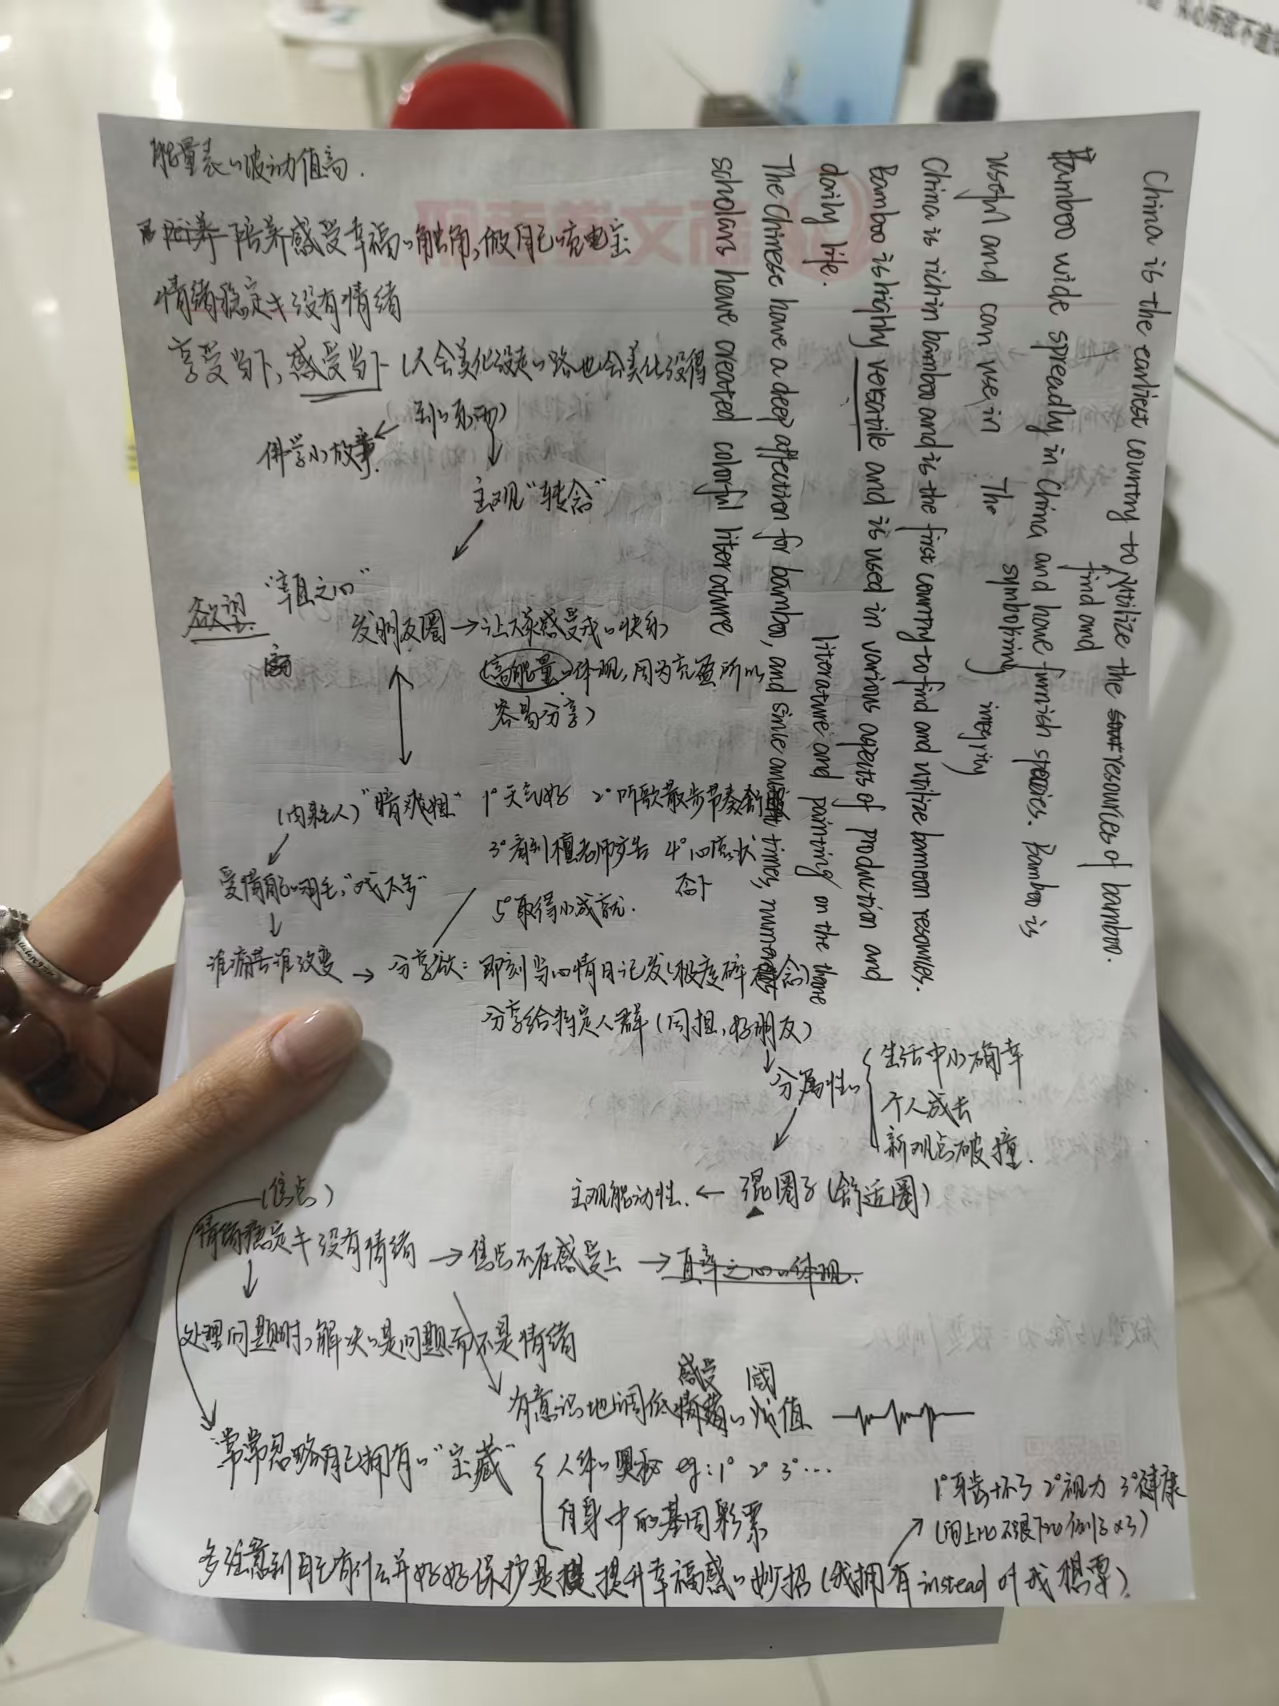 能量表"波动值高.
培养感受幸福"触角,做自己"充电宝
情绪稳定≠没有情绪
享受当下,感受当下(人会美化没走"路也会美化没得
到"东西)
佛学小故事.
主观"转念"
欲望
"率直之心"
发朋友圈→让大家感受我"快乐
(高能量"体现,因为充盈所以
容易分享)
(内耗人)"暗爽姐"
1°天气好 2°听歌散步节奏
3°看到檀老师广告 4°
5°取得小成就.
受情自己"羽毛,
谁痛苦谁改变→分享欲:即刻当心情日记发(极度碎碎念)
分享给特定人群(同担,好朋友)
分属性"
生活中小确幸
个人成长
新观点碰撞.
主观能动性.←混圈子(舒适圈)
(焦点)
情绪稳定≠没有情绪→焦点不在感受上→直率之心"体现.
处理问题时,解决"是问题而不是情绪
有意识地调低感受"阈值
常常忽略自己拥有"“宝藏”
人体"奥秘 eg:1° 2° 3°…
自身中的基因彩票
1°牙齿 2°视力 3°健康
多注意到自己有什么并好好保护是提升幸福感"妙招(我拥有instead of我想要).
China is the earliest country to find and utilize the resources of bamboo.
Bamboo wide spreadly in China and have furnish species. Bamboo is
useful and can use in The symbolizing integrity
China is rich in bamboo and is the first country to find and utilize bamboo resources.
Bamboo is highly versatile and is used in various aspects of production and
daily life.
literature and painting on the theme
The Chinese have a deep affection for bamboo, and since ancient times, numerous
scholars have created colorful literature